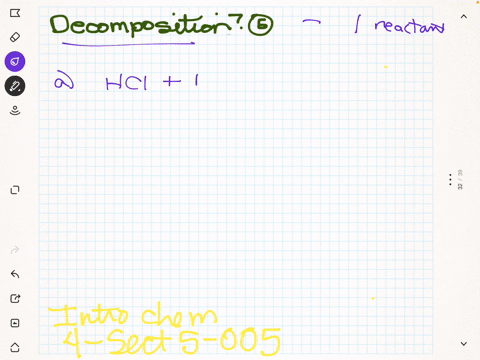 Decomposition? ⑤ - 1 reactant
a) HCl + 1
32 / 39
Intro chem
4-Sect 5-005